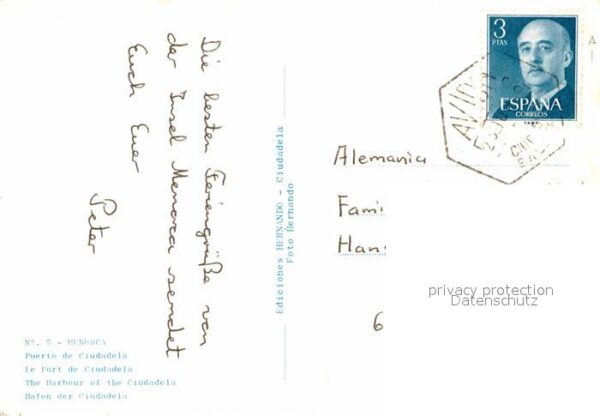 Die besten Feriengrüße von
der Insel Menorca sendet
Euch Euer
Peter
Ediciones HERNANDO - Ciudadela
Foto Hernando
Nº. 5 - MENORCA
Puerto de Ciudadela
Le Port de Ciudadela
The Harbour of the Ciudadela
Hafen der Ciudadela
3
PTAS
ESPAÑA
CORREOS
Alemania
Fami
Han
6
privacy protection
Datenschutz